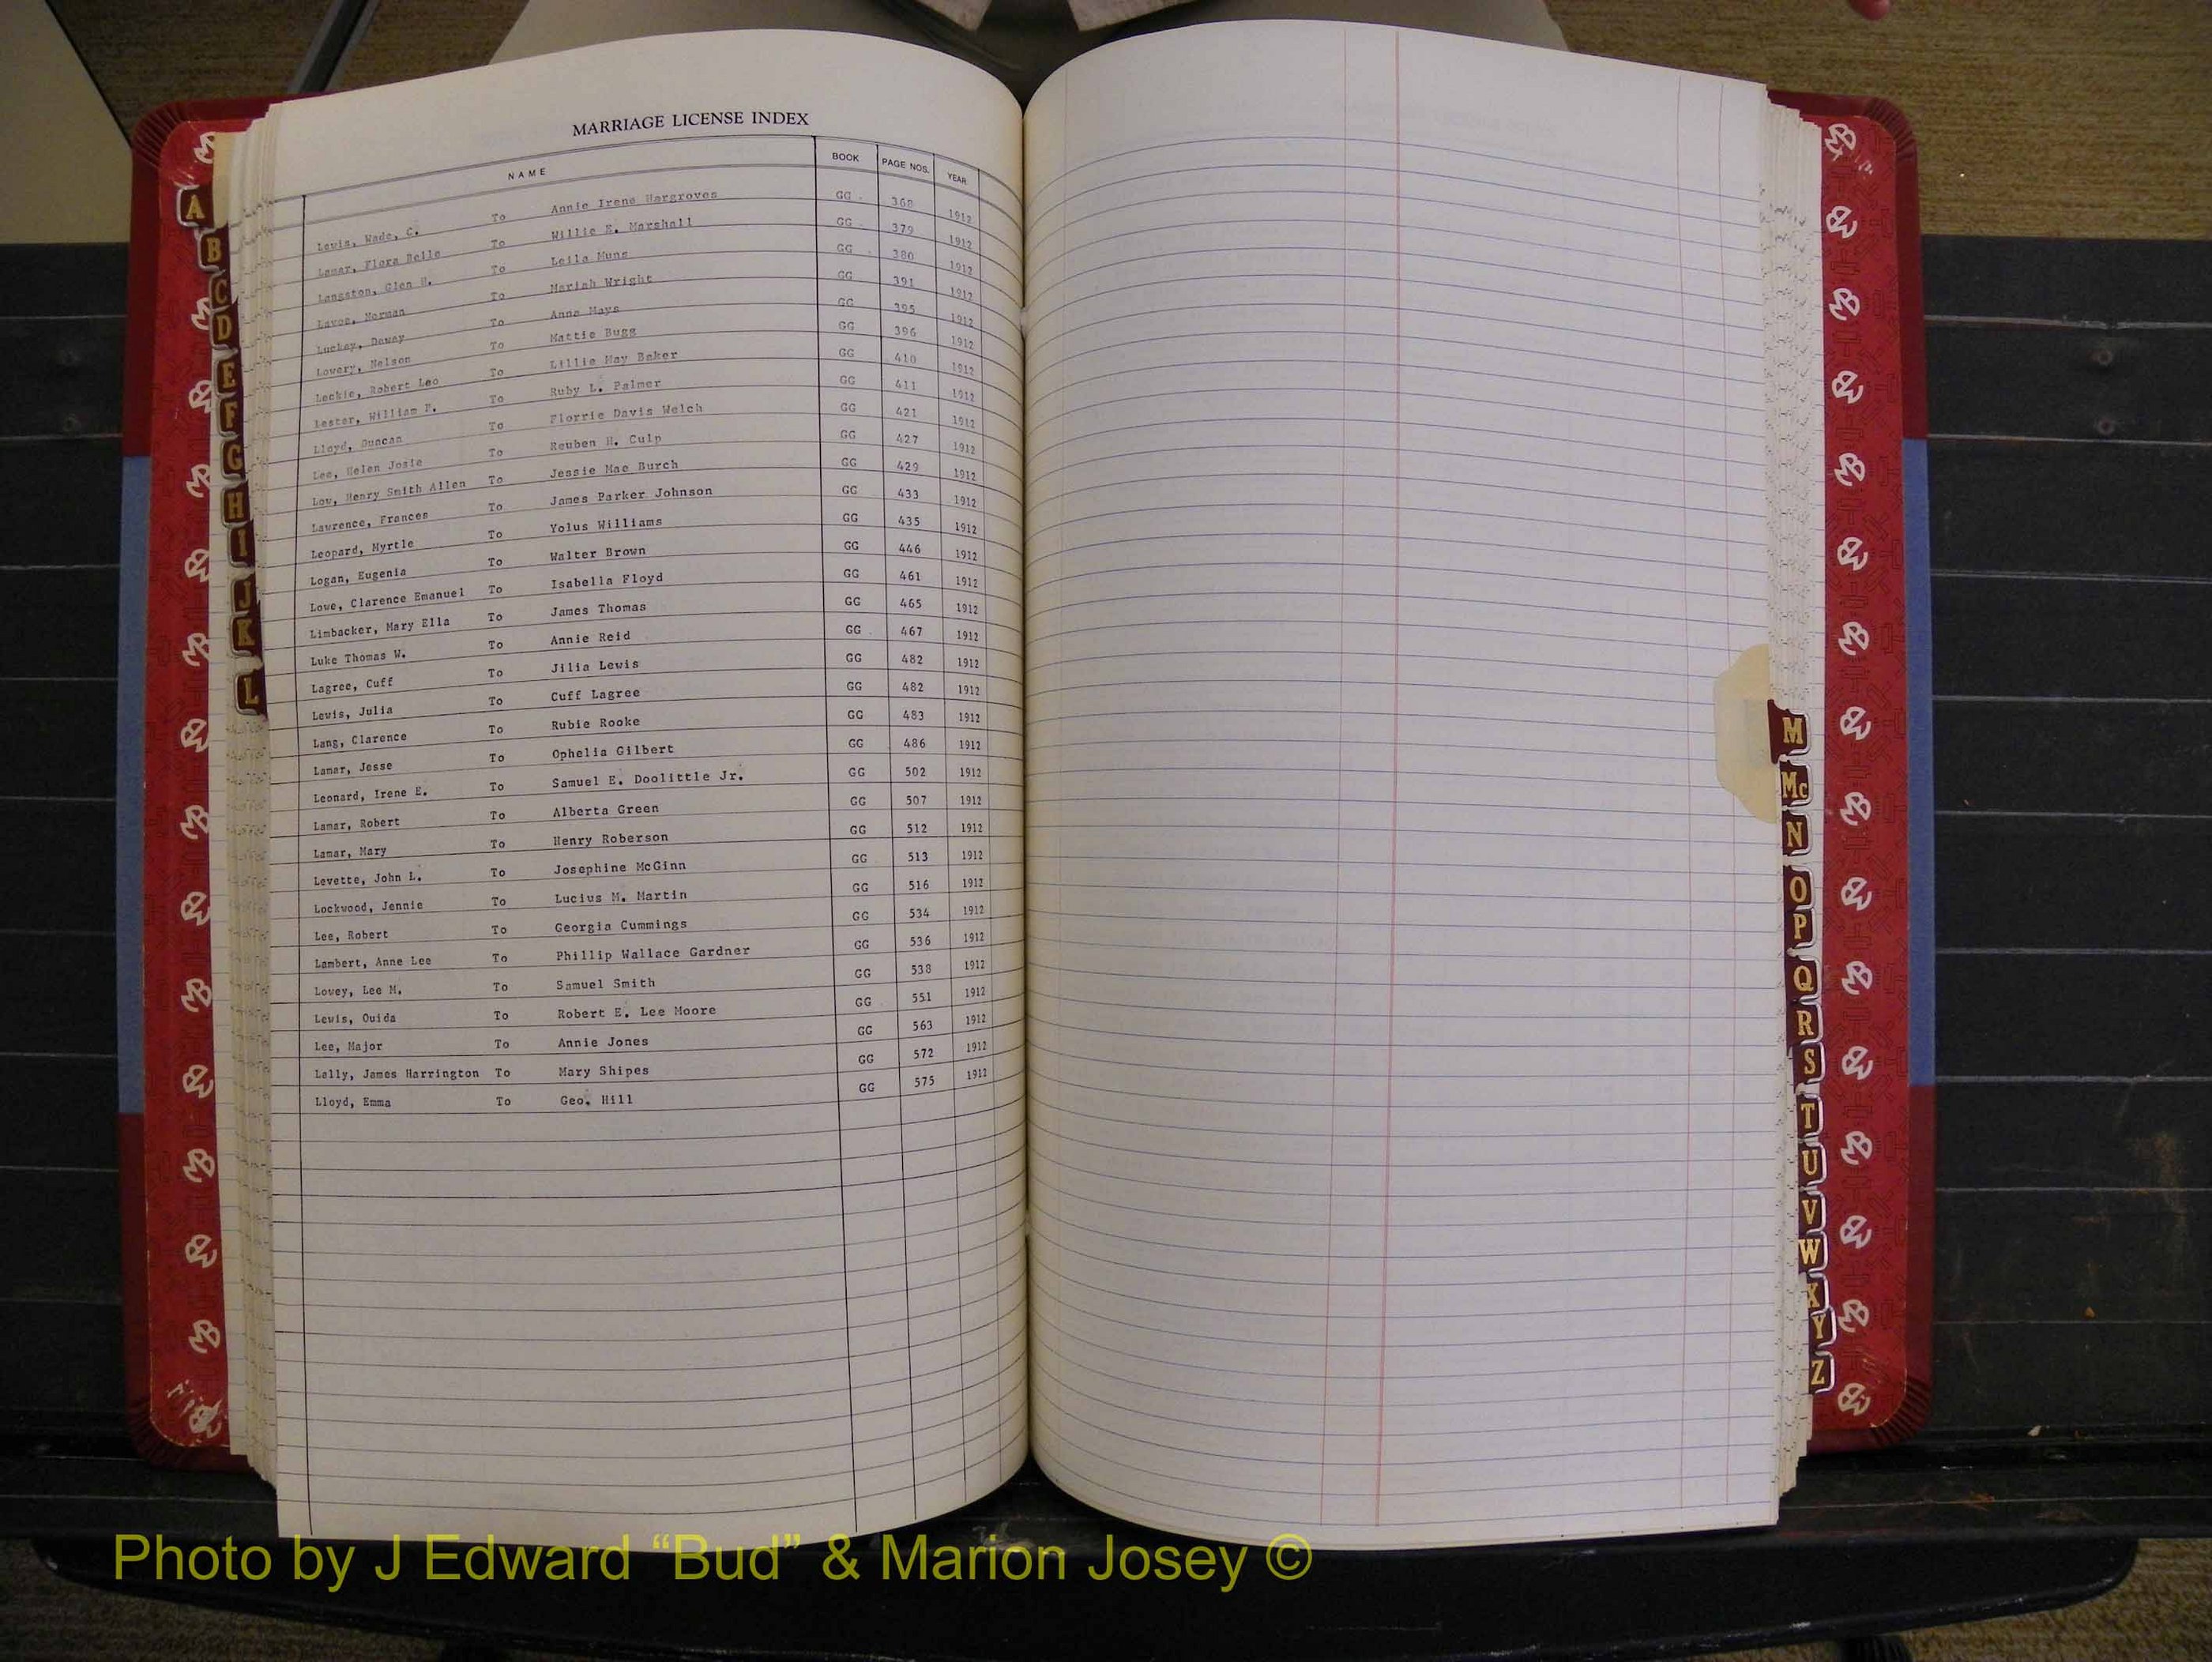 MARRIAGE LICENSE INDEX
NAME BOOK PAGE NOS. YEAR
Lewis, Wade, C. To Annie Irene Hargroves GG 368 1912
Lamar, Flora Belle To Willie E. Marshall GG 379 1912
Langston, Glen H. To Leila Muns GG 380 1912
Norman To Mariah Wright GG 391 1912
Luckey, Dewey To Anna Mays GG 395 1912
Lowery, Nelson To Mattie Bugg GG 396 1912
Leckie, Robert Leo To Lillie May Baker GG 410 1912
Lester, William F. To Ruby L. Palmer GG 411 1912
Lloyd, Duncan To Florrie Davis Welch GG 421 1912
Lee, Helen Josie To Reuben H. Culp GG 427 1912
Low, Henry Smith Allen To Jessie Mae Burch GG 429 1912
Lawrence, Frances To James Parker Johnson GG 433 1912
Leopard, Myrtle To Yolus Williams GG 435 1912
Logan, Eugenia To Walter Brown GG 446 1912
Lowe, Clarence Emanuel To Isabella Floyd GG 461 1912
Limbacker, Mary Ella To James Thomas GG 465 1912
Luke Thomas W. To Annie Reid GG 467 1912
Lagree, Cuff To Jilia Lewis GG 482 1912
Lewis, Julia To Cuff Lagree GG 482 1912
Lang, Clarence To Rubie Rooke GG 483 1912
Lamar, Jesse To Ophelia Gilbert GG 486 1912
Leonard, Irene E. To Samuel E. Doolittle Jr. GG 502 1912
Lamar, Robert To Alberta Green GG 507 1912
Lamar, Mary To Henry Roberson GG 512 1912
Levette, John L. To Josephine McGinn GG 513 1912
Lockwood, Jennie To Lucius M. Martin GG 516 1912
Lee, Robert To Georgia Cummings GG 534 1912
Lambert, Anne Lee To Phillip Wallace Gardner GG 536 1912
Lovey, Lee M. To Samuel Smith GG 538 1912
Lewis, Ouida To Robert E. Lee Moore GG 551 1912
Lee, Major To Annie Jones GG 563 1912
Lally, James Harrington To Mary Shipes GG 572 1912
Lloyd, Emma To Geo. Hill GG 575 1912
A
B
C
D
E
F
G
H
I
J
K
L
M
Mc
N
O
P
Q
R
S
T
U
V
W
X
Y
Z
Photo by J Edward “Bud” & Marion Josey ©